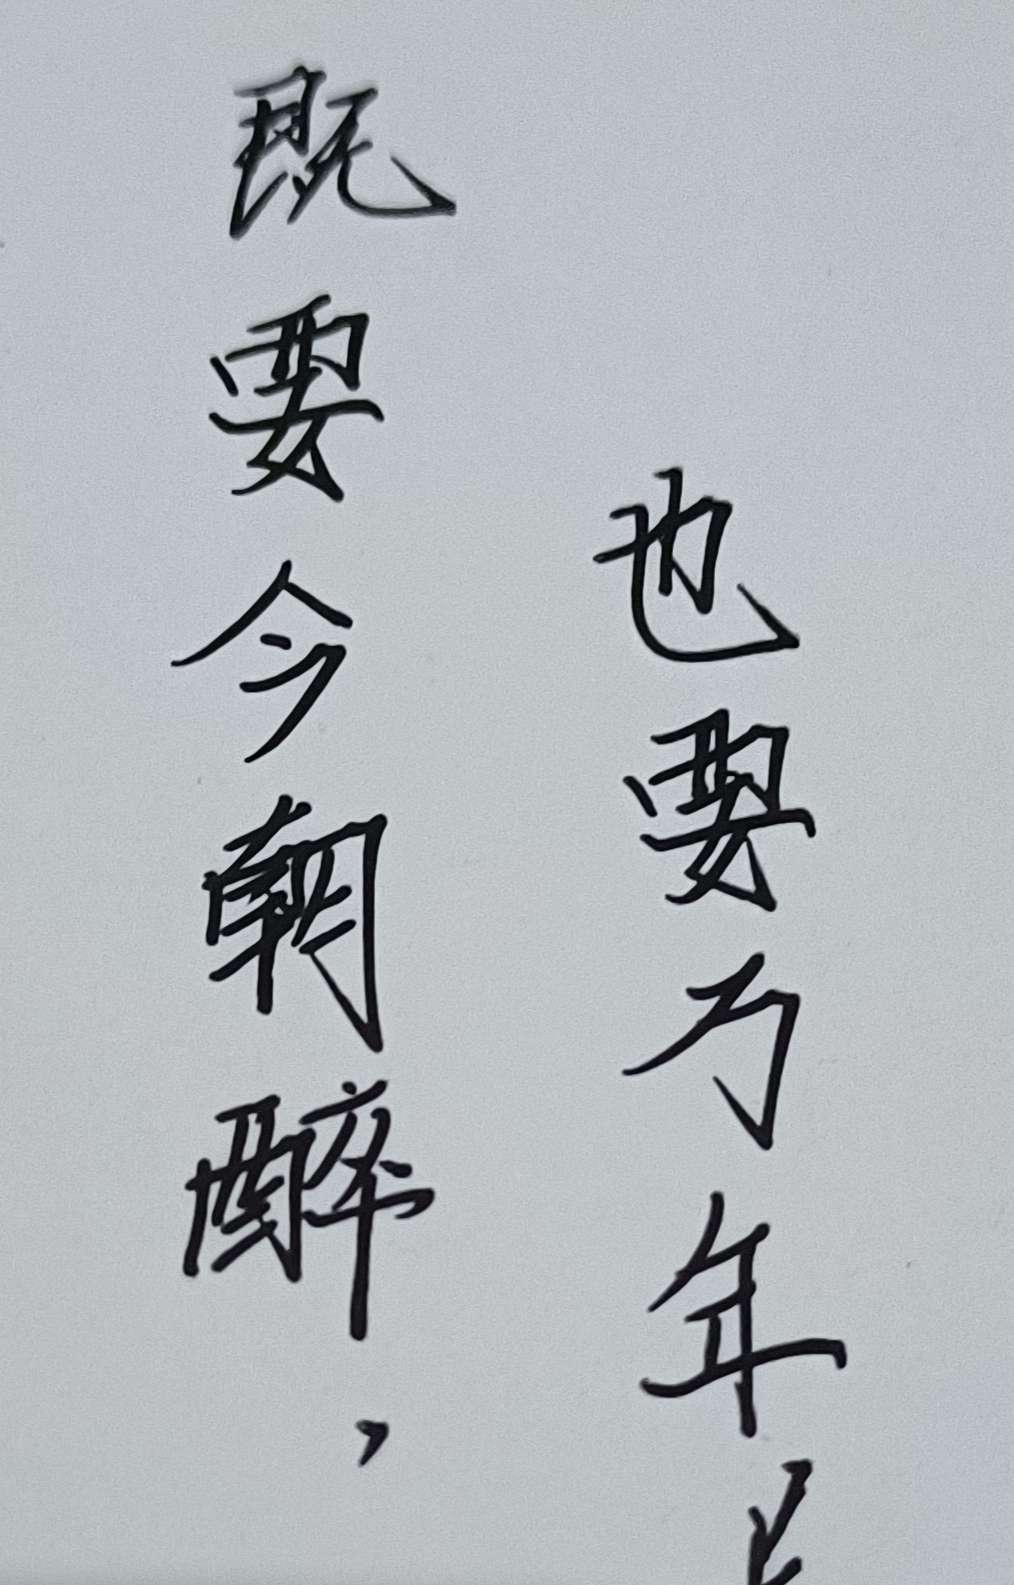 既要今朝醉，
也要万年